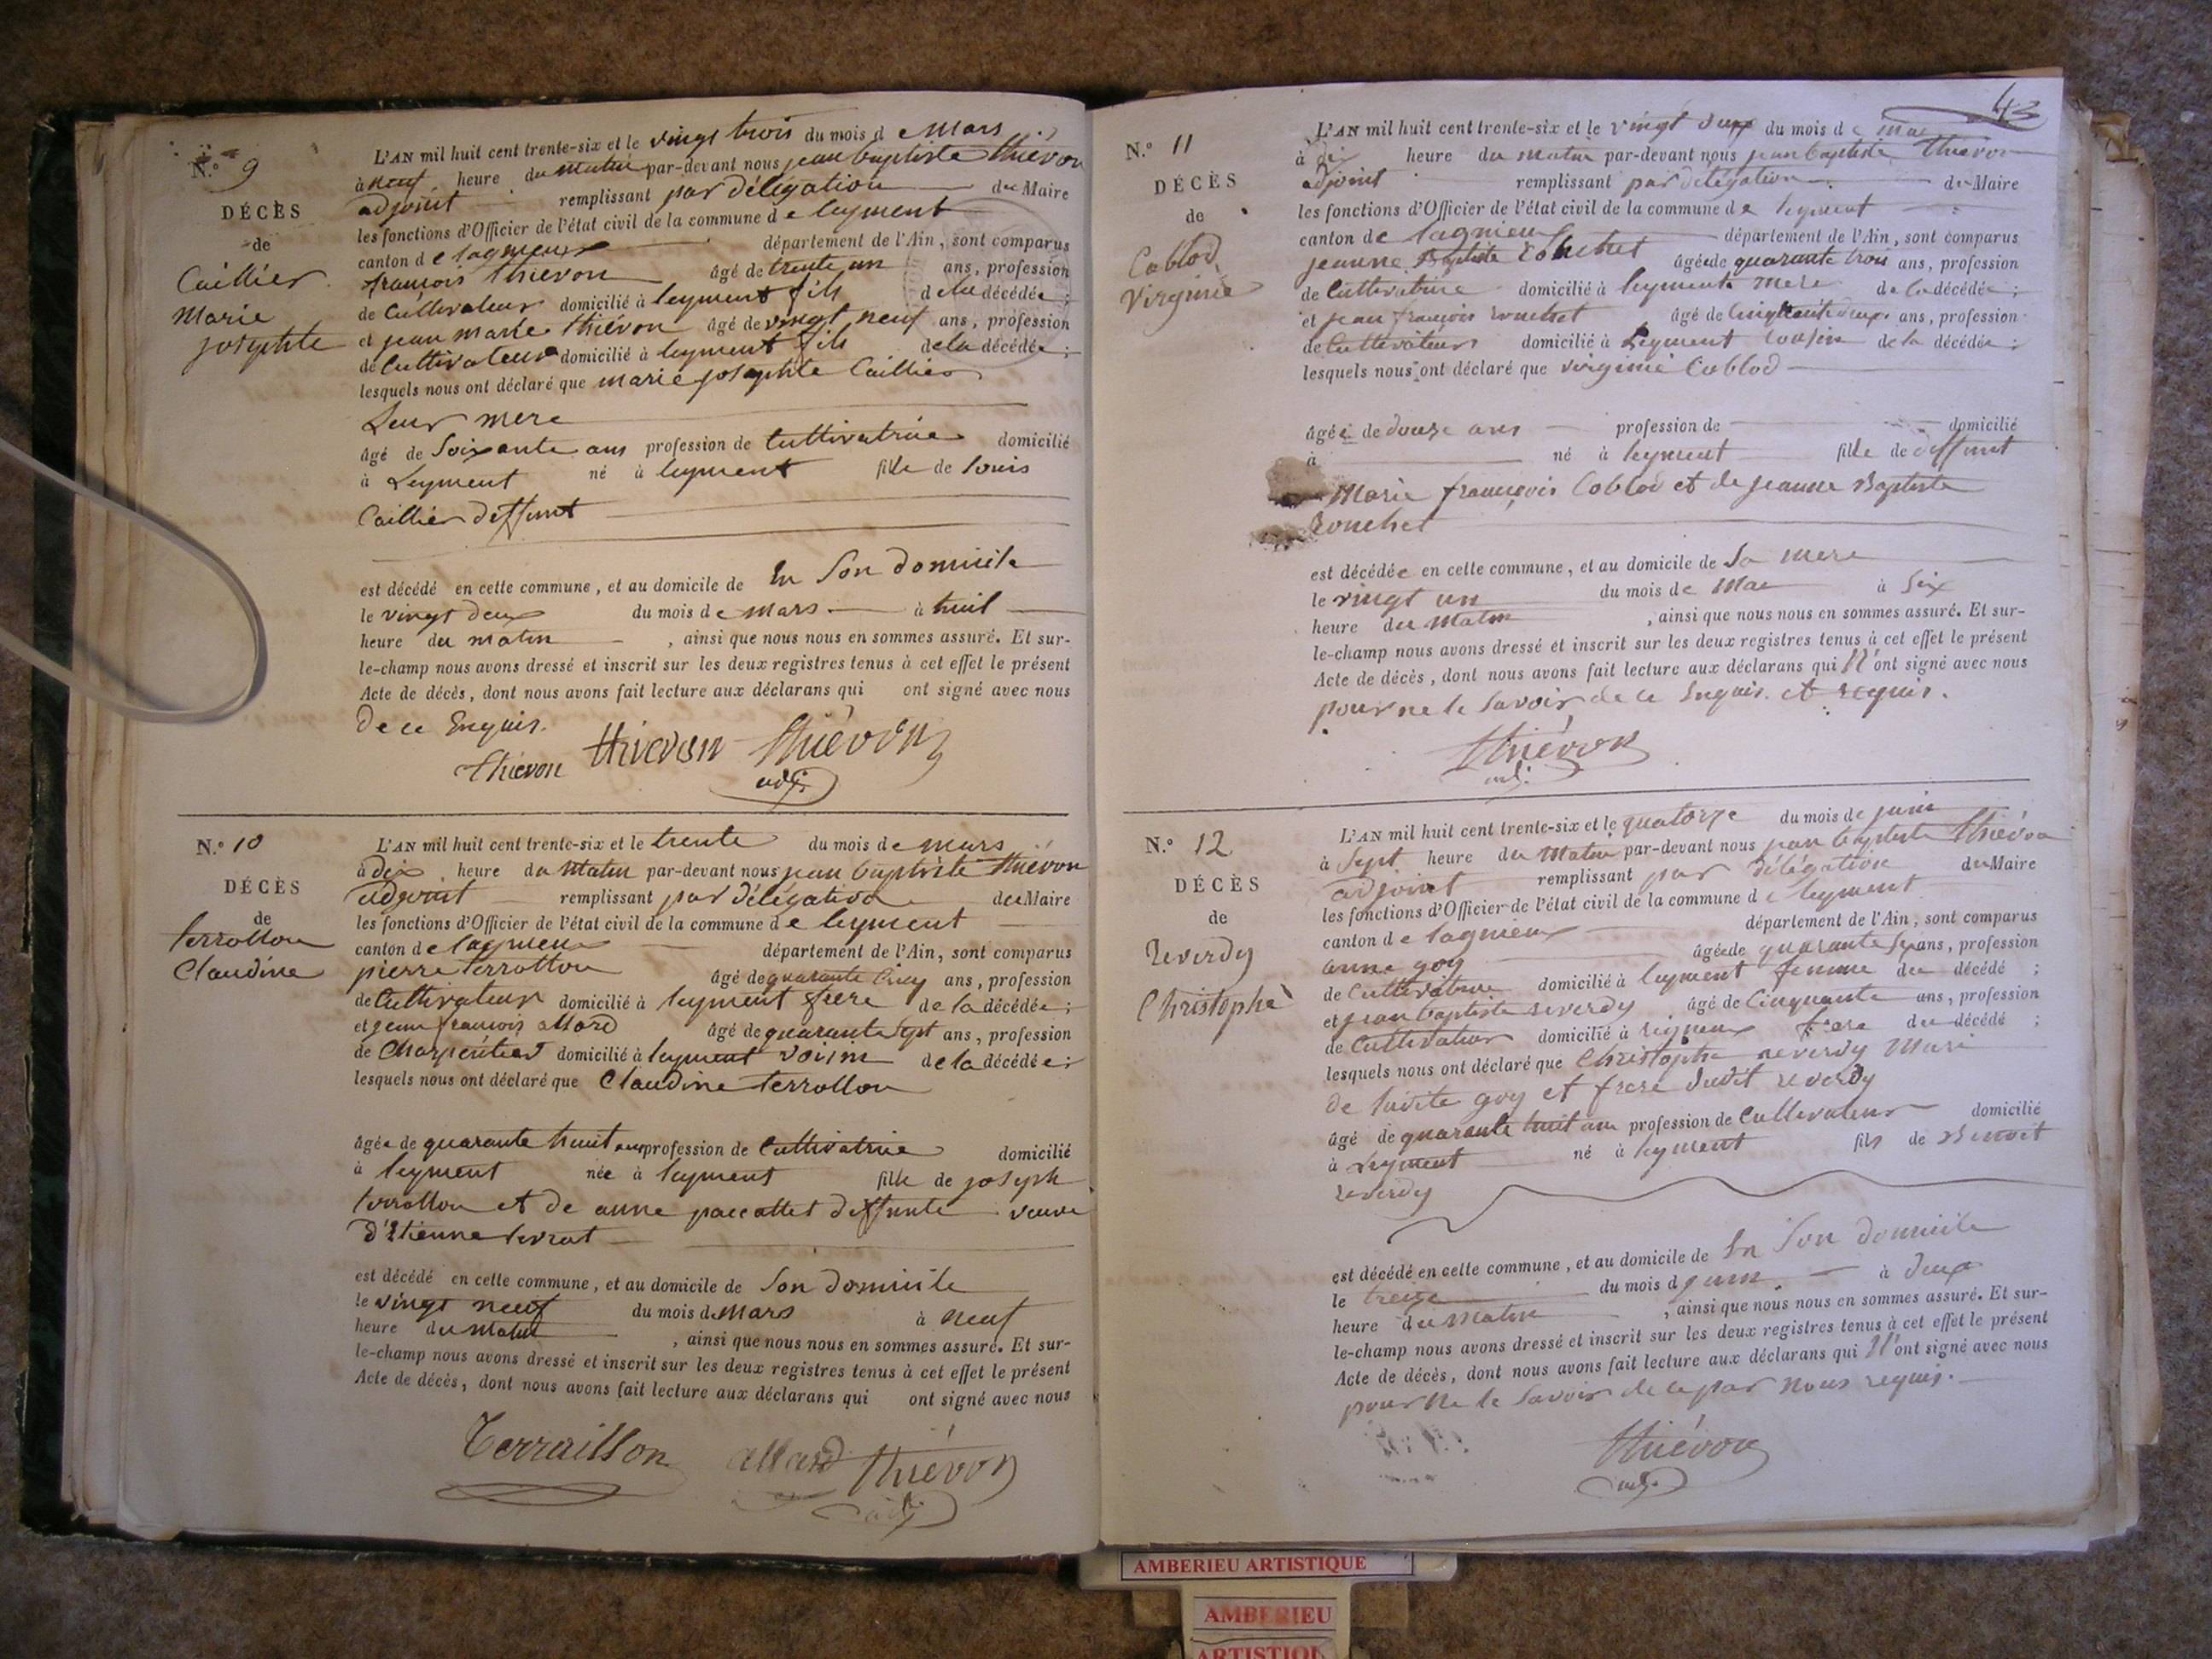 N.° 9
DÉCÈS
de
Caillier
Marie
josephte
L'AN mil huit cent trente-six et le vingt trois du mois d e Mars
à neuf heure du matin par-devant nous jean baptiste thiévon
adjoint remplissant par délégation du Maire
les fonctions d'Officier de l'état civil de la commune d e leyment
canton d e lagnieux département de l'Ain, sont comparus
françois thievon âgé de trente un ans, profession
de Cultivateur domicilié à leyment fils de la décédée ;
et jean marie thiévon âgé de vingt neuf ans, profession
de Cultivateur domicilié à leyment fils de la décédée ;
lesquels nous ont déclaré que marie josephte Caillier
Leur mere
âgé de Soixante ans profession de Cultivatrice domicilié
à Leyment né à leyment fille de louis
Caillier deffunt
est décédé en cette commune, et au domicile de En Son domicile
le vingt deux du mois d e mars à huit
heure du matin , ainsi que nous nous en sommes assuré. Et sur-
le-champ nous avons dressé et inscrit sur les deux registres tenus à cet effet le présent
Acte de décès, dont nous avons fait lecture aux déclarans qui ont signé avec nous
de ce Enquis.
thievon thievon thiévon
adj.
N.° 10
DÉCÈS
de
terrollon
Claudine
L'AN mil huit cent trente-six et le trente du mois de mars
à dix heure du Matin par-devant nous jean baptiste thiévon
adjoint remplissant par délégation du Maire
les fonctions d'Officier de l'état civil de la commune d e leyment
canton d e lagnieux département de l'Ain, sont comparus
pierre terrollon âgé de quarante Cinq ans, profession
de Cultivateur domicilié à leyment frere de la décédée ;
et jean françois allard âgé de quarante Sept ans, profession
de Charpentier domicilié à leyment voisin de la décédée ;
lesquels nous ont déclaré que Claudine terrollon
âgée de quarante huit ans profession de Cultivatrice domicilié
à leyment née à leyment fille de joseph
terrollon et de anne deffunte veuve
d'Etienne
est décédé en cette commune, et au domicile de Son domicile
le vingt neuf du mois de Mars à neuf
heure du Matin , ainsi que nous nous en sommes assuré. Et sur-
le-champ nous avons dressé et inscrit sur les deux registres tenus à cet effet le présent
Acte de décès, dont nous avons fait lecture aux déclarans qui ont signé avec nous
Terraillon allard thiévon
adj.
43
N.° 11
DÉCÈS
de
Coblod
Virginie
L'AN mil huit cent trente-six et le vingt deux du mois d e mae
à dix heure du matin par-devant nous jean baptiste thievon
adjoint remplissant par délégation du Maire
les fonctions d'Officier de l'état civil de la commune d e leyment
canton de lagnieu département de l'Ain, sont comparus
jeanne Baptiste âgée de quarante trois ans, profession
de Cultivatrice domicilié à leyment mere de la décédée ;
et jean françois âgé de Cinquante deux ans, profession
de Cultivateur domicilié à Leyment cousin de la décédée ;
lesquels nous ont déclaré que virginie Coblod
âgée de douze ans profession de domicilié
à né à leyment fille de deffunt
Marie françois Coblod et de jeanne Baptiste
est décédée en cette commune, et au domicile de Sa mere
le vingt un du mois de Mae à Six
heure du Matin , ainsi que nous nous en sommes assuré. Et sur-
le-champ nous avons dressé et inscrit sur les deux registres tenus à cet effet le présent
Acte de décès, dont nous avons fait lecture aux déclarans qui N'ont signé avec nous
pour ne le savoir de ce Enquis et requis.
thiévon
adj.
N.° 12
DÉCÈS
de
Reverdy
Christophe
L'AN mil huit cent trente-six et le quatorze du mois de juin
à Sept heure du Matin par-devant nous jean baptiste thiévon
adjoint remplissant par délégation du Maire
les fonctions d'Officier de l'état civil de la commune d e leyment
canton d e lagnieux département de l'Ain, sont comparus
anne goy âgée de quarante ans, profession
de Cultivatrice domicilié à leyment femme du décédé ;
et jean baptiste reverdy âgé de Cinquante ans, profession
de Cultivateur domicilié à frere du décédé ;
lesquels nous ont déclaré que Christophe reverdy Mari
de ladite goy et frere dudit reverdy
âgé de quarante huit ans profession de Cultivateur domicilié
à Leyment né à leyment fils de Benoit
reverdy
est décédé en cette commune, et au domicile de En Son domicile
le treize du mois d juin à deux
heure du Matin , ainsi que nous nous en sommes assuré. Et sur-
le-champ nous avons dressé et inscrit sur les deux registres tenus à cet effet le présent
Acte de décès, dont nous avons fait lecture aux déclarans qui N'ont signé avec nous
pour Ne le Savoir de ce par nous requis.
thiévon
adj.
AMBERIEU ARTISTIQUE
AMBERIEU
ARTISTIQUE